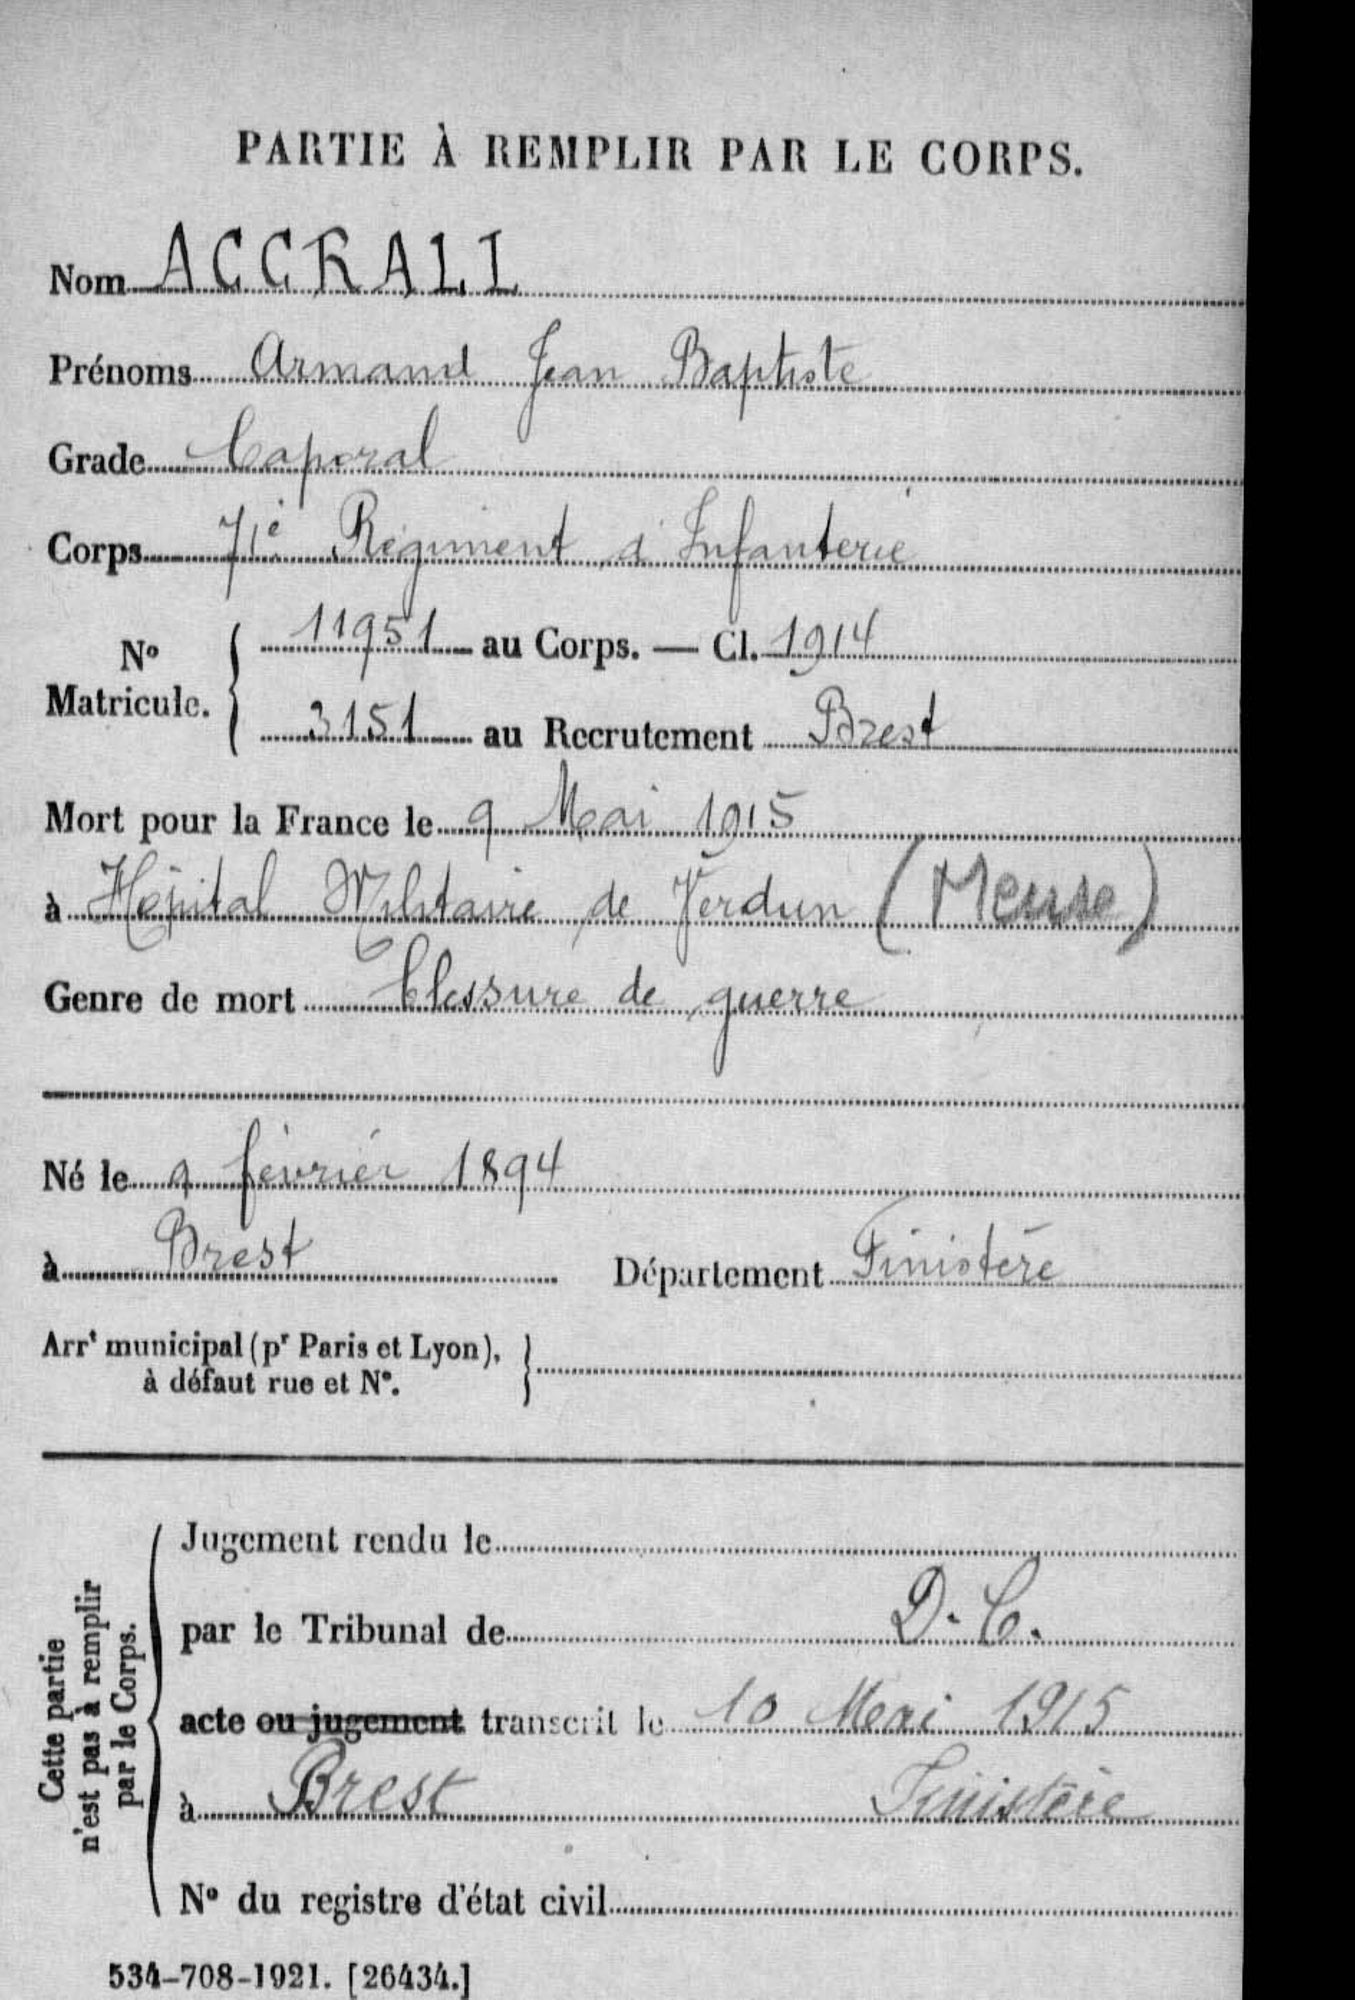 PARTIE À REMPLIR PAR LE CORPS.
Nom ACCRALL
Prénoms Armand Jean Baptiste
Grade Caporal
Corps 71e Régiment d'Infanterie
No Matricule. { 11951 au Corps. — Cl. 1914
3151 au Recrutement Brest
Mort pour la France le 9 Mai 1915
à Hôpital Militaire de Verdun (Meuse)
Genre de mort blessure de guerre
Né le 9 février 1894
à Brest Département Finistère
Arrt municipal (pr Paris et Lyon), }
à défaut rue et N°.
Cette partie
n'est pas à remplir
par le Corps.
Jugement rendu le
par le Tribunal de D. C.
acte ou jugement transcrit le 10 Mai 1915
à Brest Finistère
N° du registre d'état civil
534-708-1921. [26434.]